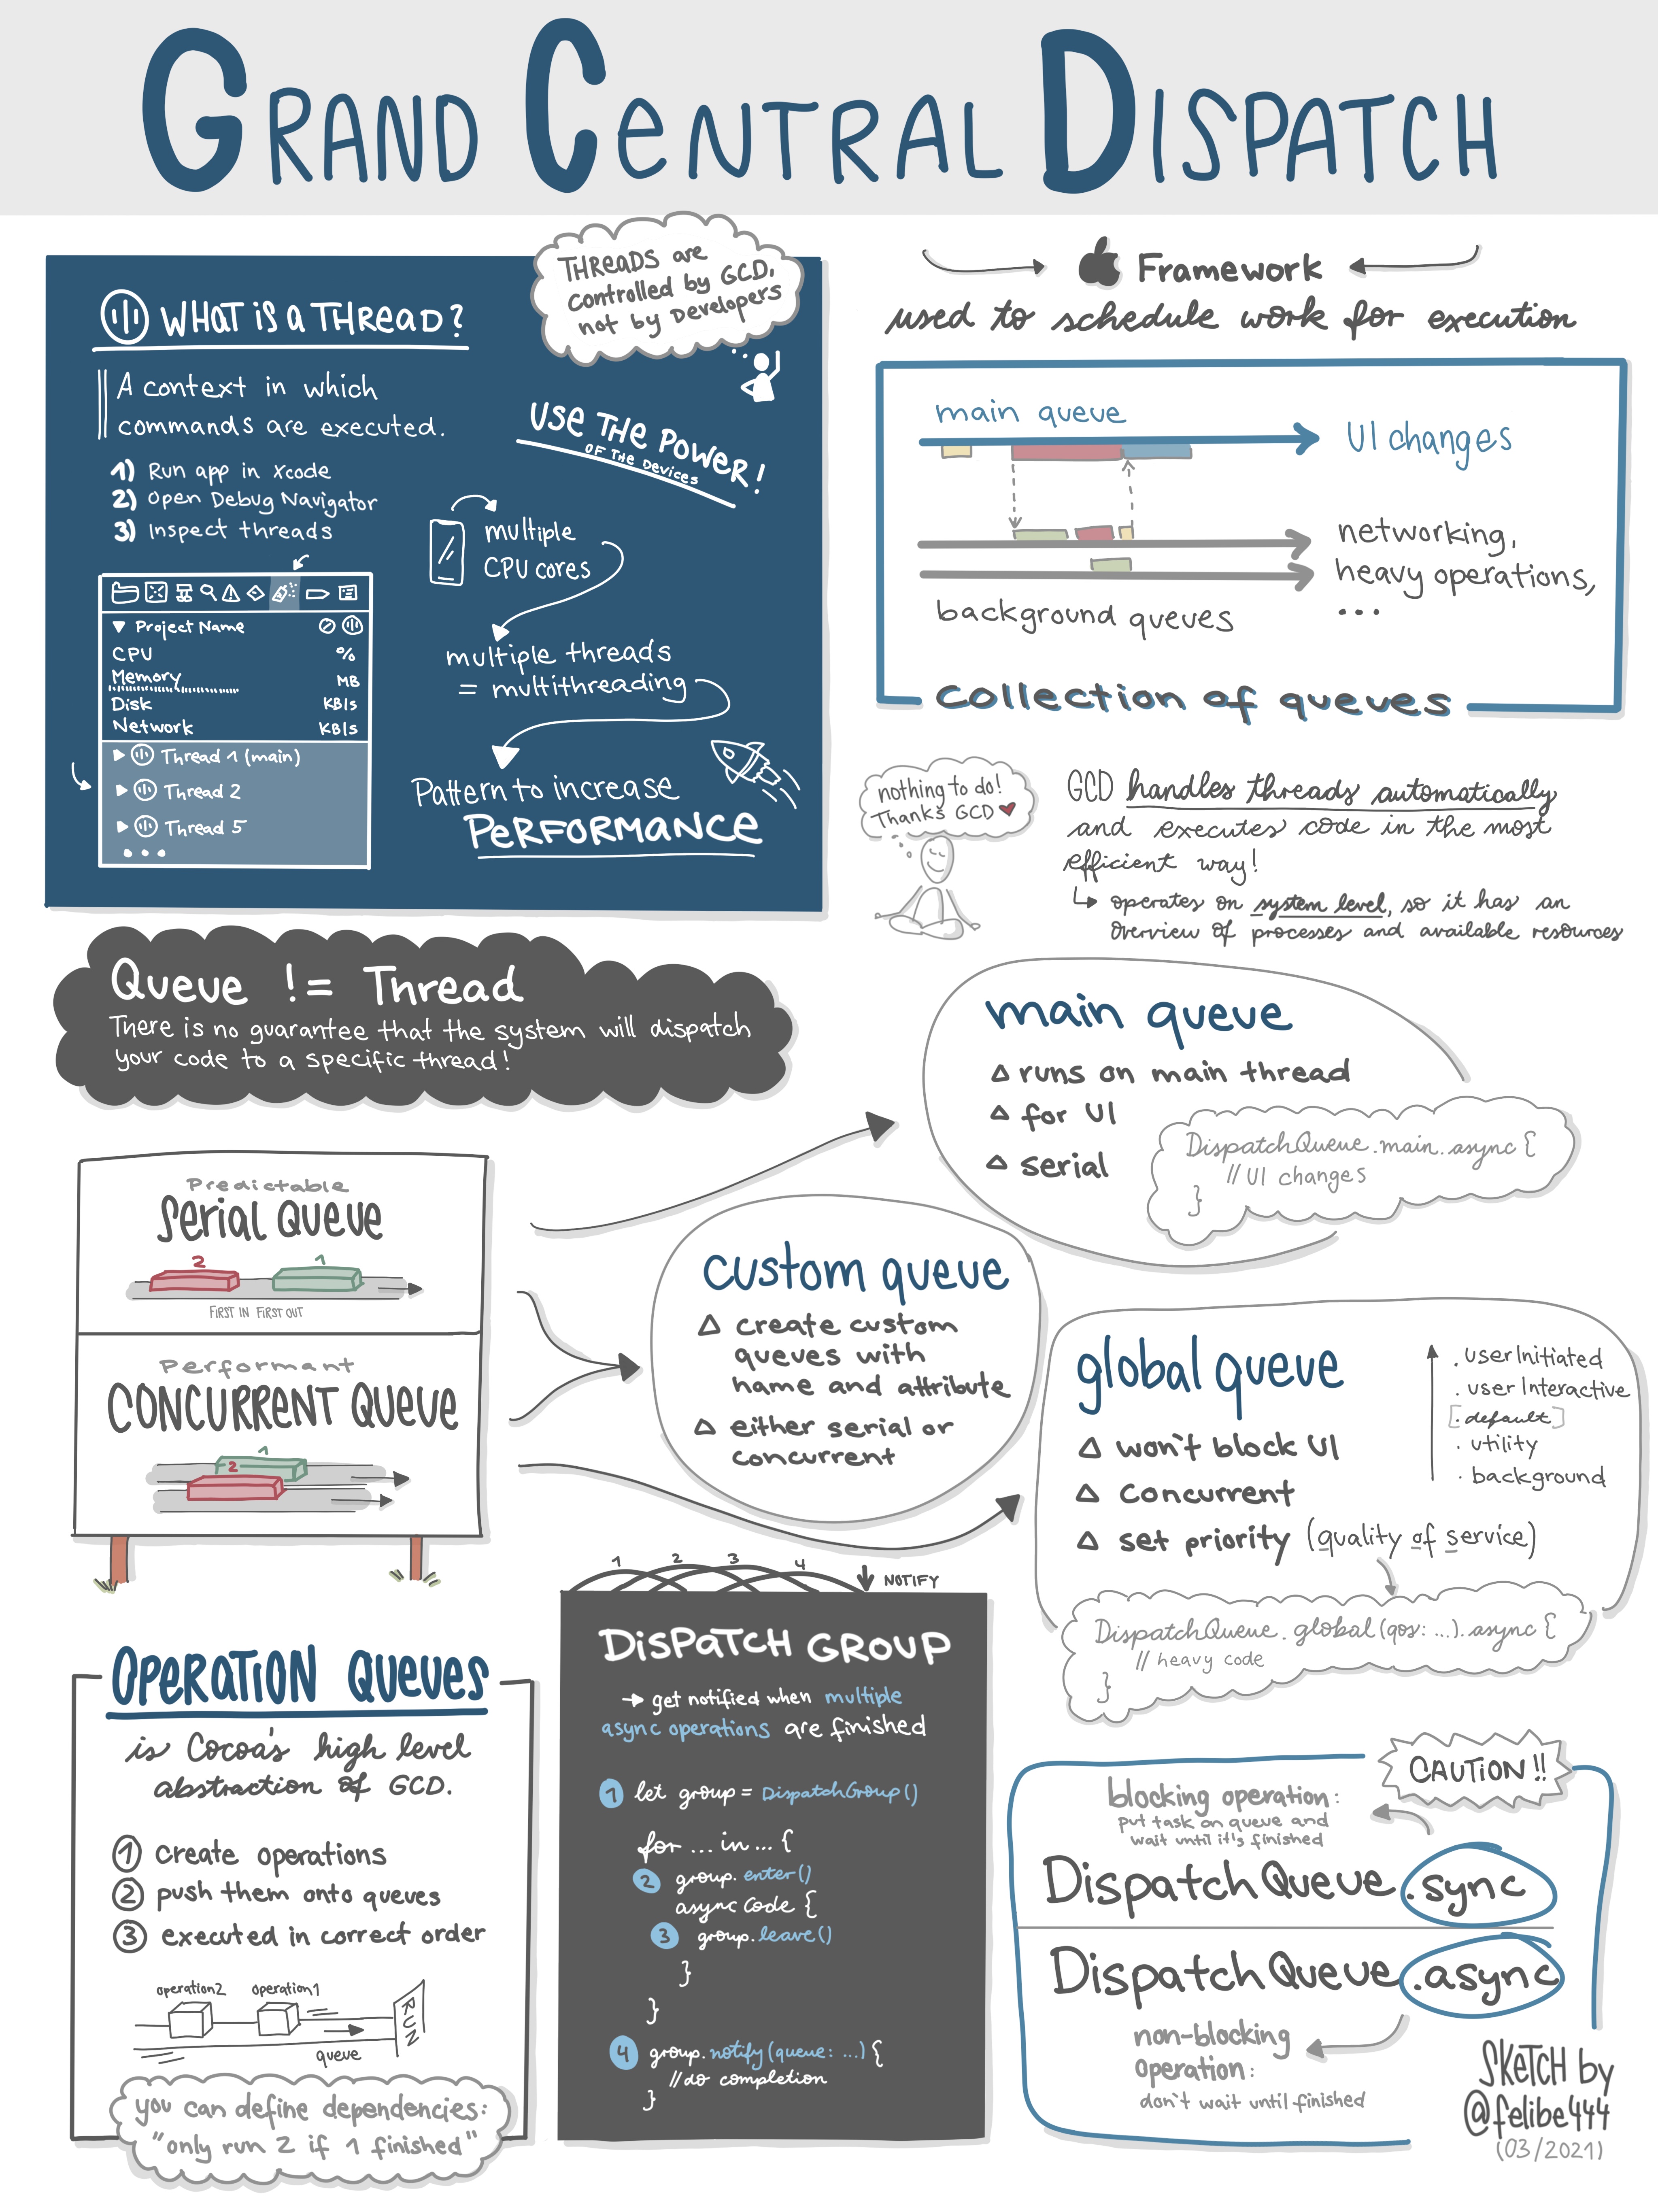 GRAND CENTRAL DISPATCH
WHAT IS A THREAD?
A context in which
commands are executed.
1) Run app in Xcode
2) Open Debug Navigator
3) Inspect threads
Project Name
CPU %
Memory MB
Disk KB/s
Network KB/s
Thread 1 (main)
Thread 2
Thread 5
...
THREADS are
controlled by GCD,
not by Developers
USE THE POWER!
OF THE DEVICES
multiple
CPU cores
multiple threads
= multithreading
Pattern to increase
PERFORMANCE
Framework
used to schedule work for execution
main queue
UI changes
networking,
heavy operations,
...
background queues
collection of queues
nothing to do!
Thanks GCD
GCD handles threads automatically
and executes code in the most
efficient way!
operates on system level, so it has an
overview of processes and available resources
Queue != Thread
There is no guarantee that the system will dispatch
your code to a specific thread!
main queue
runs on main thread
for UI
serial
DispatchQueue.main.async {
// UI changes
}
Predictable
SERIAL QUEUE
2 1
FIRST IN FIRST OUT
Performant
CONCURRENT QUEUE
1
2
custom queue
create custom
queues with
name and attribute
either serial or
concurrent
global queue
won't block UI
concurrent
set priority (quality of service)
. userInitiated
. userInteractive
[. default]
. utility
. background
DispatchQueue.global(qos: ...).async {
// heavy code
}
OPERATION QUEUES
is Cocoa's high level
abstraction of GCD.
1 create operations
2 push them onto queues
3 executed in correct order
operation2 operation1
RUN
queue
you can define dependencies:
"only run 2 if 1 finished"
1 2 3 4 NOTIFY
DISPATCH GROUP
→ get notified when multiple
async operations are finished
1 let group = DispatchGroup()
for ... in ... {
2 group.enter()
async Code {
3 group.leave()
}
}
4 group.notify(queue: ...) {
// do completion
}
CAUTION!!
blocking operation:
put task on queue and
wait until it's finished
DispatchQueue.sync
DispatchQueue.async
non-blocking
operation:
don't wait until finished
SKETCH by
@felibe444
(03/2021)